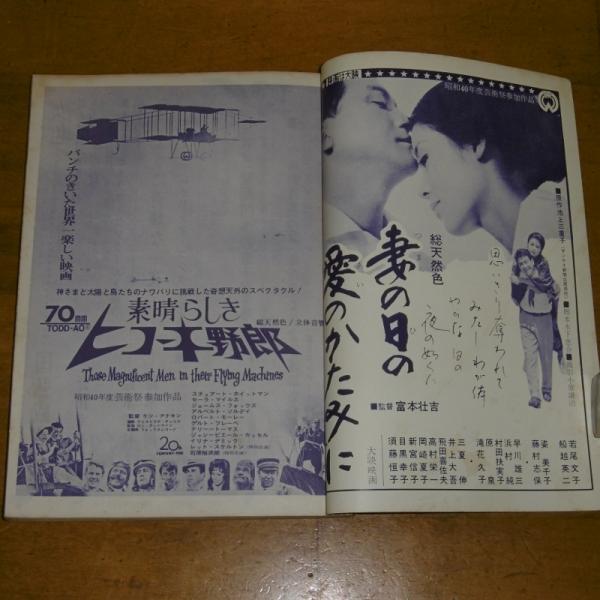 パンチのきいた世界一楽しい映画
神さまと太陽と鳥たちのナワバリに挑戦した奇想天外のスペクタクル!
70mm
TODD-AO
素晴らしき
ヒコーキ野郎
総天然色/立体音響
Those Magnificent Men in their Flying Machines
昭和40年度芸術祭参加作品
監督 ケン・アナキン
スチュアート・ホイットマン
セーラ・マイルズ
ジェームズ・フォックス
アルベルト・ソルディ
ロバート・モーレー
ゲルト・フレーベ
テリー・トーマス
ジャン・ピエール・カッセル
イリナ・デミック
レッド・スケルトン
石原裕次郎
20th CENTURY-FOX
昭和40年度芸術祭参加作品
妻の日の
愛のかたみに
総天然色
思いきり奪われて
みたしわが体
■原作池上三重子
■監督 富本壮吉
若尾文子
船越英二
姿美千子
藤村志保
早川雄三
浜村純
村田扶実子
滝花久子
三夏伸
井上大吾
飛田喜佐夫
高村栄一
岡崎夏子
新宮信子
目黒幸子
須藤恒子
大映映画